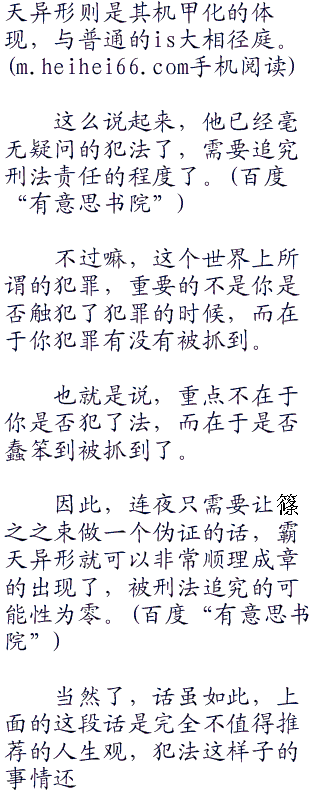 天异形则是其机甲化的体
现，与普通的is大相径庭。
(m.heihei66.com手机阅读)
这么说起来，他已经毫
无疑问的犯法了，需要追究
刑法责任的程度了。(百度
“有意思书院”)
不过嘛，这个世界上所
谓的犯罪，重要的不是你是
否触犯了犯罪的时候，而在
于你犯罪有没有被抓到。
也就是说，重点不在于
你是否犯了法，而在于是否
蠢笨到被抓到了。
因此，连夜只需要让篠
之之束做一个伪证的话，霸
天异形就可以非常顺理成章
的出现了，被刑法追究的可
能性为零。(百度“有意思书
院”)
当然了，话虽如此，上
面的这段话是完全不值得推
荐的人生观，犯法这样子的
事情还